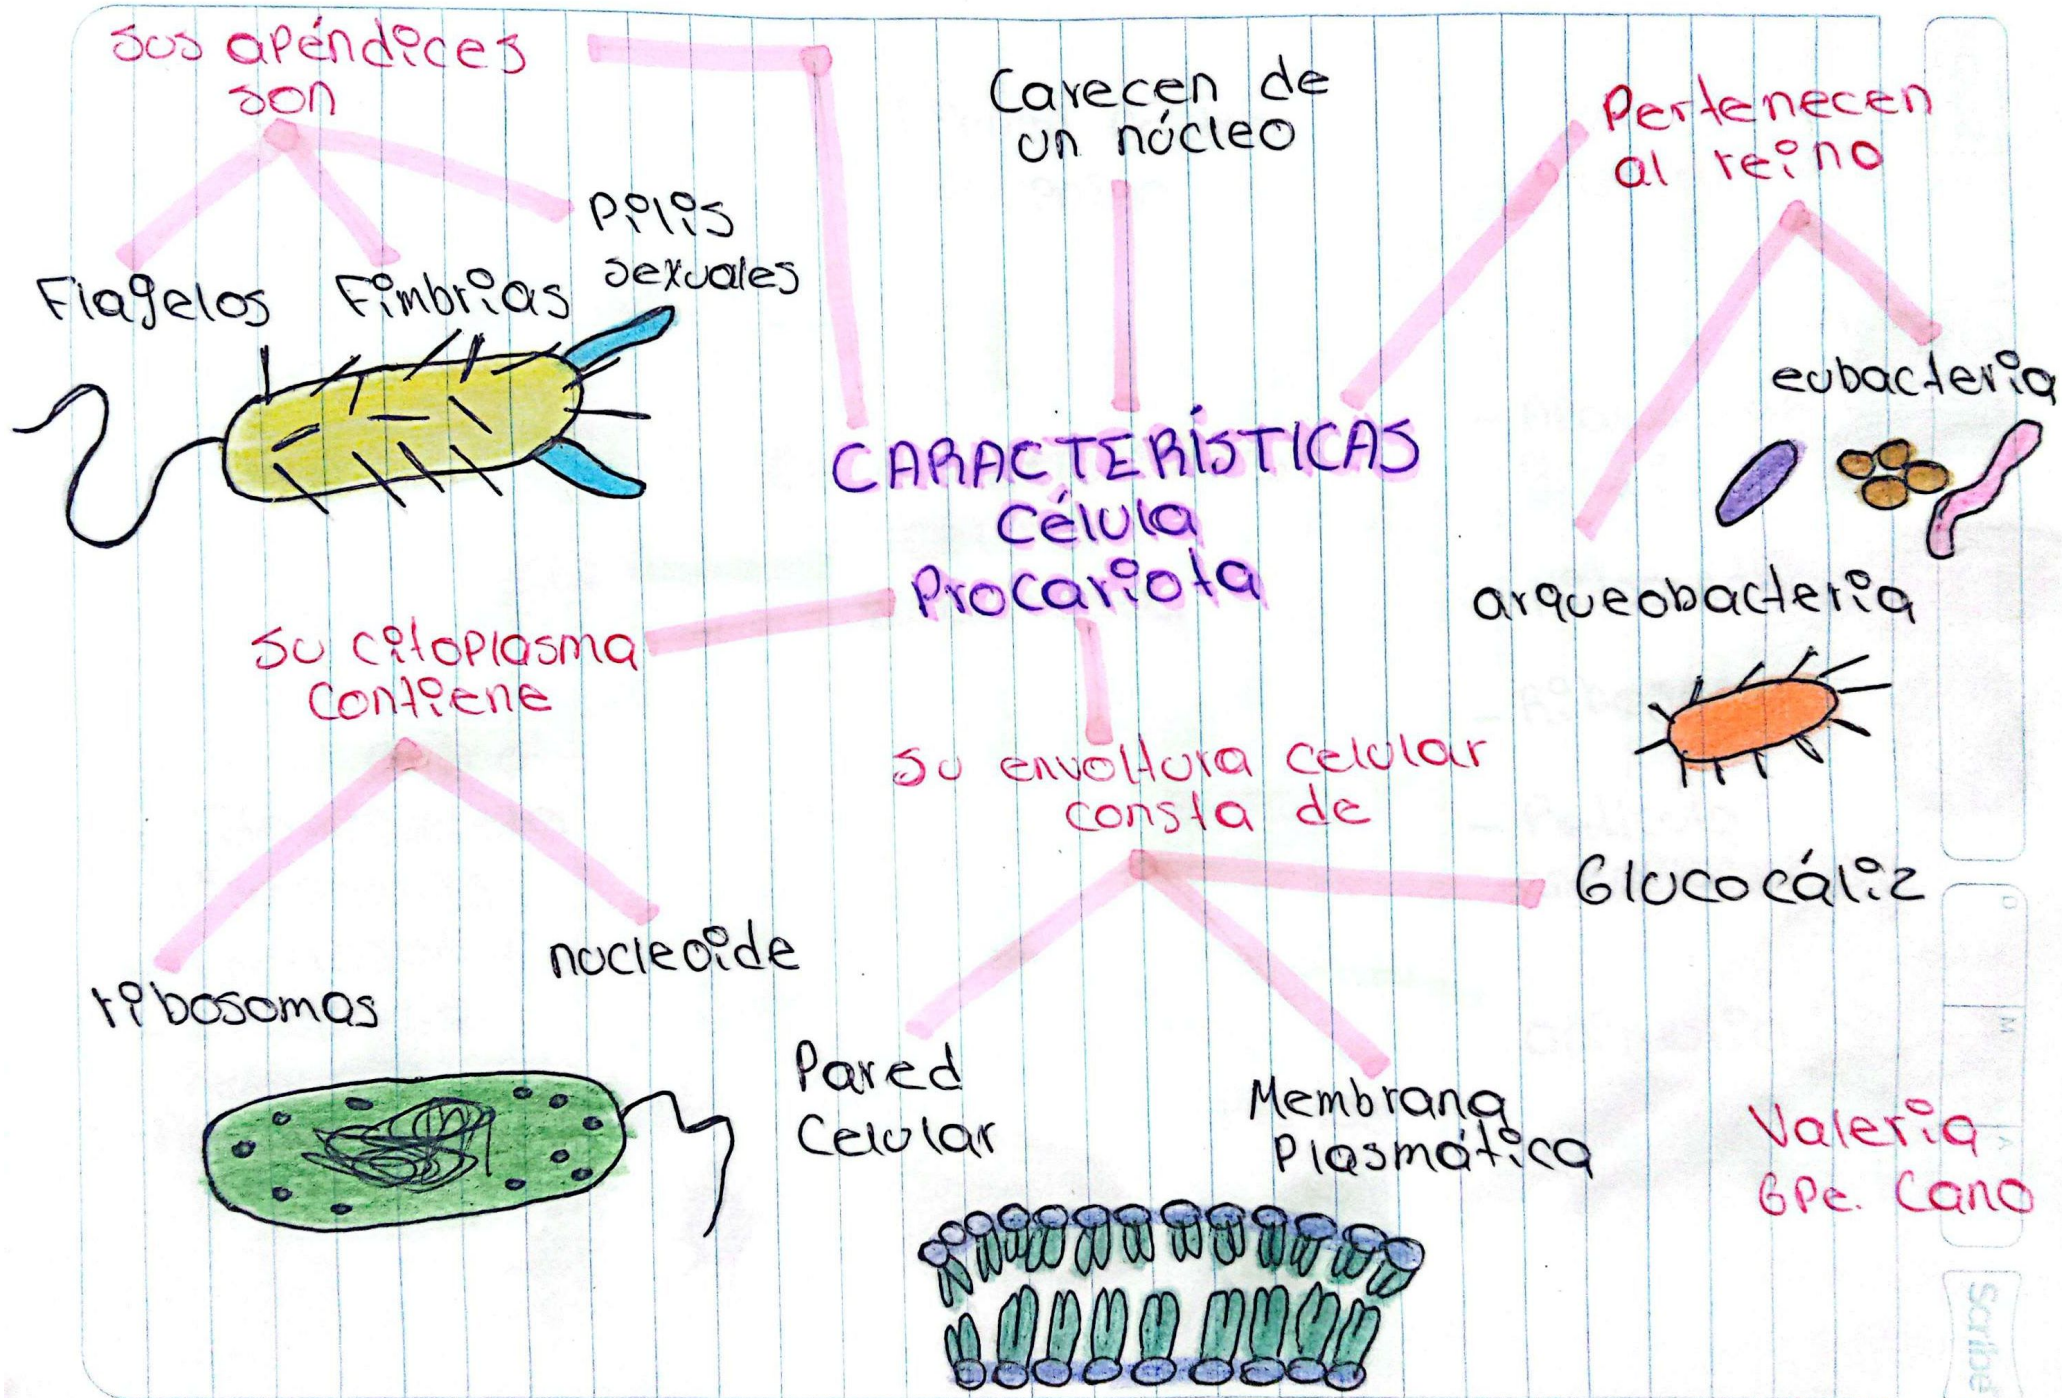 Sus apéndices
son
Flagelos
Fimbrias
Pilis
sexuales
Carecen de
un núcleo
Pertenecen
al reino
eubacteria
arqueobacteria
CARACTERÍSTICAS
Célula
Procariota
Su citoplasma
contiene
ribosomas
nucleoide
Su envoltura celular
consta de
Glucocáliz
Pared
Celular
Membrana
Plasmática
Valeria
Gpe. Cano
Scribe
D
M
A